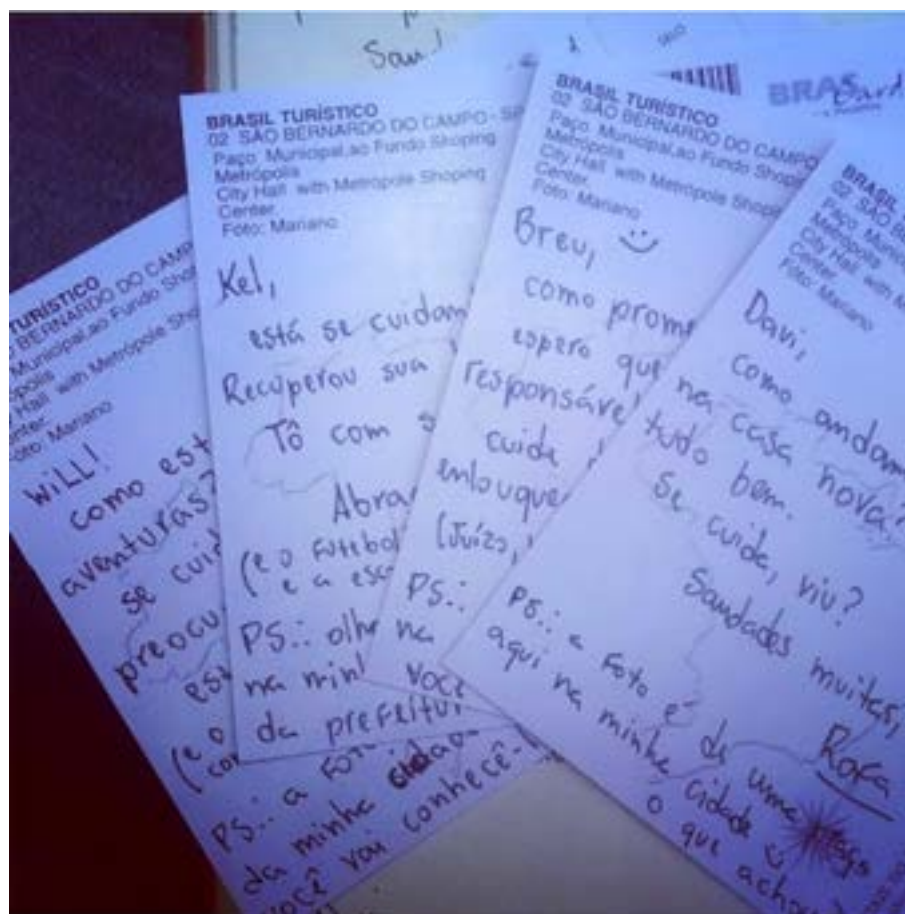 San
BRAS
TURÍSTICO
BERNARDO DO CAMP
Municipal,ao Fundo Shop
Hall with Metrópole Sho
Foto: Mariano
WiLL!
como est
aventuras?
se cuid
preocu
est
(e o
PS.: a FoT
da minha cidad
você vai conhecê-
BRASIL TURÍSTICO
02 SÃO BERNARDO DO CAMPO - SP
Paço Municipal,ao Fundo Shoping
Metrópolis
City Hall with Metrópole Shoping
Center.
Foto: Mariano
Kel,
está se cuidan
Recuperou sua
Tô com s
Abra
(e o Futebol
e a esc
PS.: olhe na
na minh
da prefeitu
BRASIL TURÍSTICO
02 SÃO BERNARDO DO CAMPO
Paço Municipal,ao Fundo Shopi
Metrópolis
City Hall with Metrópole Shopi
Center.
Foto: Mariano
Breu, :)
como prome
espero que
responsáve
cuida
enlouque
(Juízo,
PS.:
você
BRASIL
02 SÃO BE
Paço Munici
Metrópolis
City Hall with M
Center.
Foto: Mariano
Davi,
como andam
na casa nova?
tudo bem.
Se cuida, viu?
Saudades muitas,
Rafa
PS.: a Foto é de uma
aqui na minha cidade :)
o que achou?